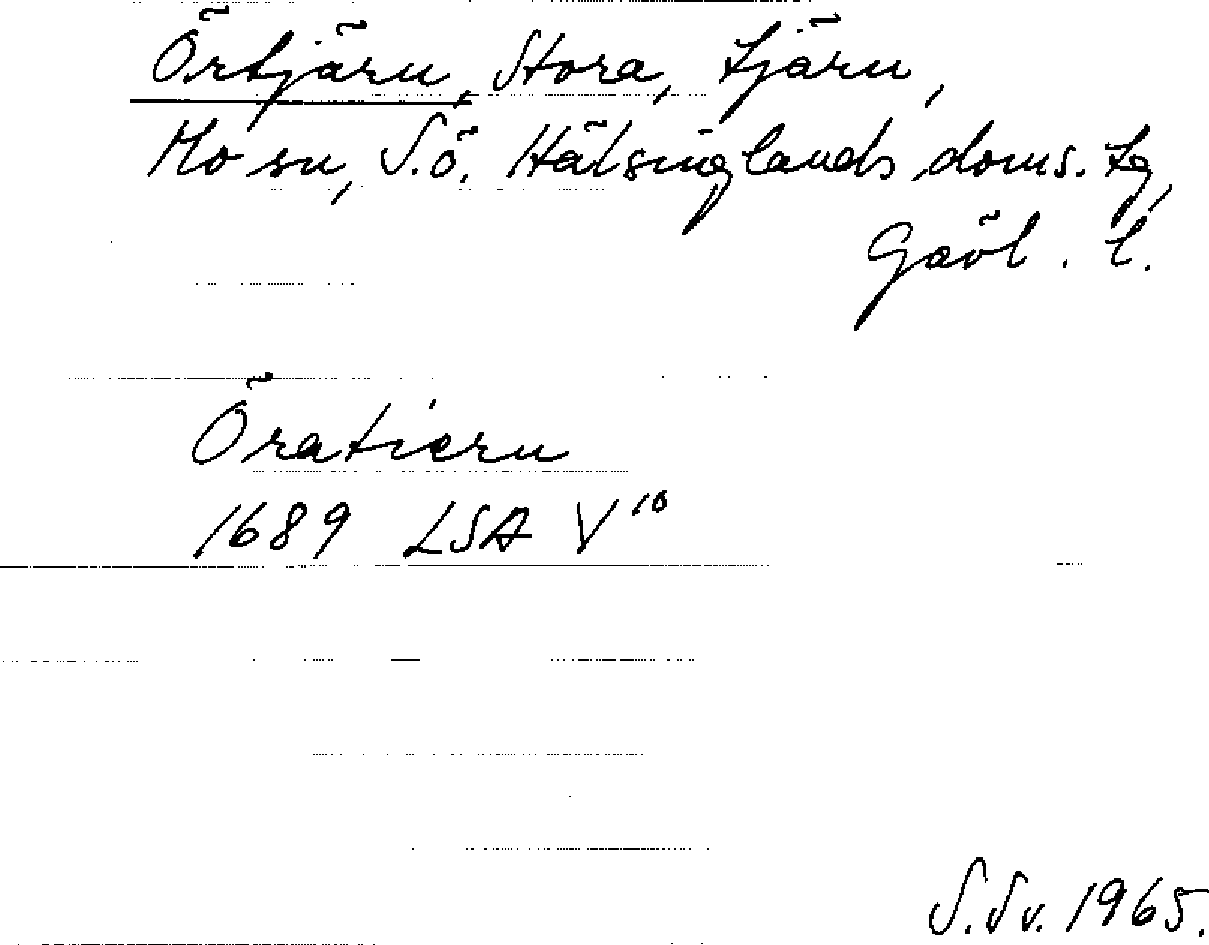 Örtjärn, Stora, tjärn,
Mo sn, S.ö. Hälsinglands doms. tg,
Gävl. l.
Öratiern
1689 LSA V¹⁰
S.Sv. 1965.